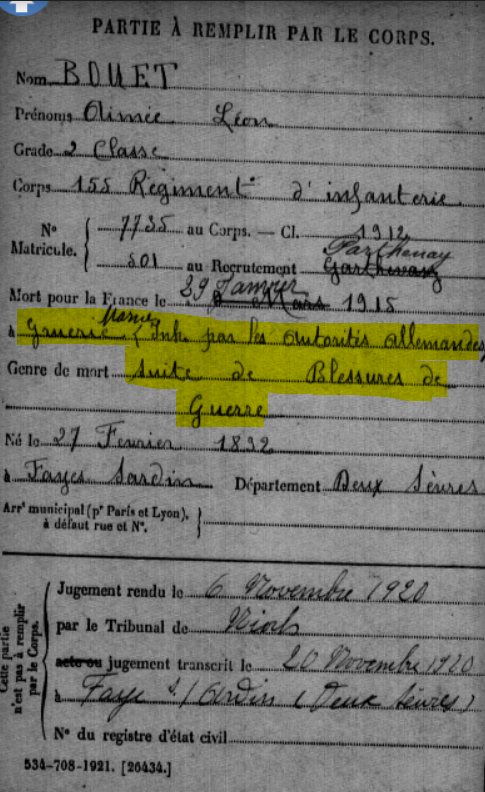 PARTIE À REMPLIR PAR LE CORPS.
Nom BOUET
Prénoms Aimée Léon
Grade 2 Classe
Corps 155 Régiment d'infanterie
Nº Matricule. 7735 au Corps. — Cl. 1912
Parthenay
501 au Recrutement
Mort pour la France le 29 Janvier 1915
à Gruerie Marne (Inh. par les autorités allemandes
Genre de mort Suite de Blessures de
Guerre
Né le 27 Fevrier 1892
à Fayes Sardin Département Deux Sèvres
Arrᵗ municipal (pʳ Paris et Lyon),
à défaut rue et Nº.
Cette partie
n'est pas à remplir
par le Corps.
Jugement rendu le 6 Novembre 1920
par le Tribunal de Niort
acte ou jugement transcrit le 20 Novembre 1920
à Faye s/Ardin (Deux Sèvres)
Nº du registre d'état civil
534-708-1921. [26434.]